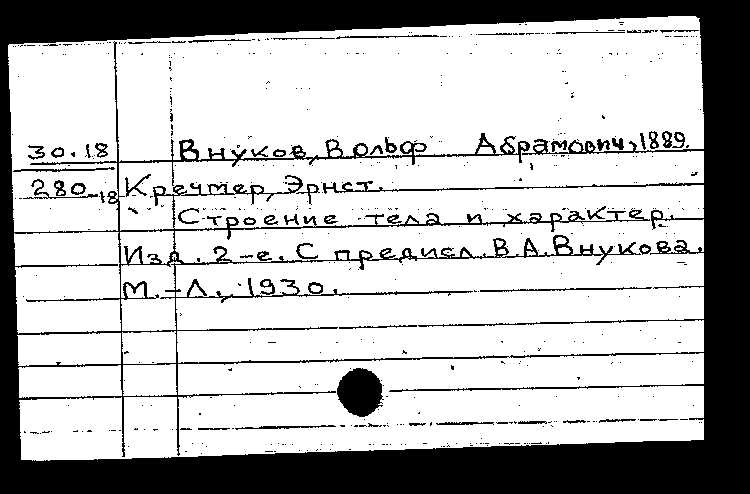 30.18 Внуков, Вольф Абрамович, 1889.
280-18 Кречмер, Эрнст.
Строение тела и характер.
Изд. 2-е. С предисл. В.А.Внукова.
М.-Л., 1930.